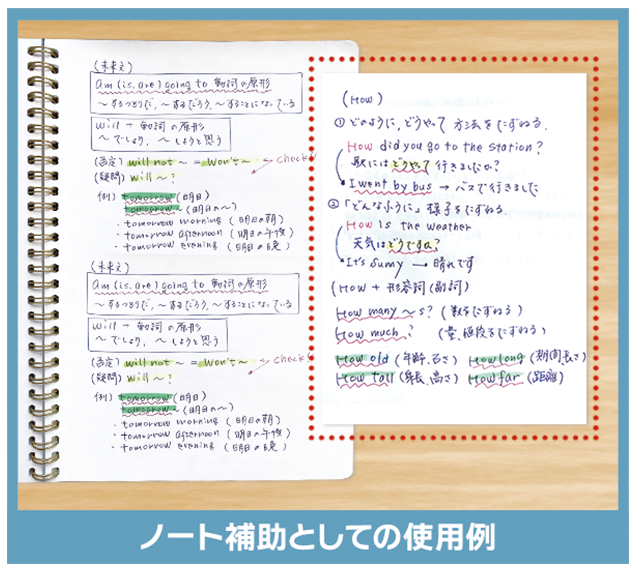 (未来文)
am (is. are) going to 動詞の原形
～するつもりだ, ～するだろう, ～することになっている
will + 動詞の原形
～でしょう, ～しようと思う
(否定) will not ～ = won't ～
check!
(疑問) will ～?
例) tomorrow (明日)
tomorrow (明日の～)
・tomorrow morning (明日の朝)
・tomorrow afternoon (明日の午後)
・tomorrow evening (明日の晩)
(未来文)
am (is. are) going to 動詞の原形
～するつもりだ, ～するだろう, ～することになっている
will + 動詞の原形
～でしょう, ～しようと思う
(否定) will not ～ = won't ～
check!
(疑問) will ～?
例) tomorrow (明日)
tomorrow (明日の～)
・tomorrow morning (明日の朝)
・tomorrow afternoon (明日の午後)
・tomorrow evening (明日の晩)
(How)
① どのように, どうやって 方法をたずねる.
How did you go to the station?
駅にはどうやって行きましたか?
I went by bus → バスで行きました
② 「どんなふうに」 様子をたずねる.
How is the weather
天気はどうですか?
It's sunny → 晴れです
(How + 形容詞(副詞)
How many ～s? (数をたずねる)
How much ? (量、値段をたずねる)
How old (年齢、古さ) How long (期間、長さ)
How tall (身長、高さ) How far (距離)
ノート補助としての使用例